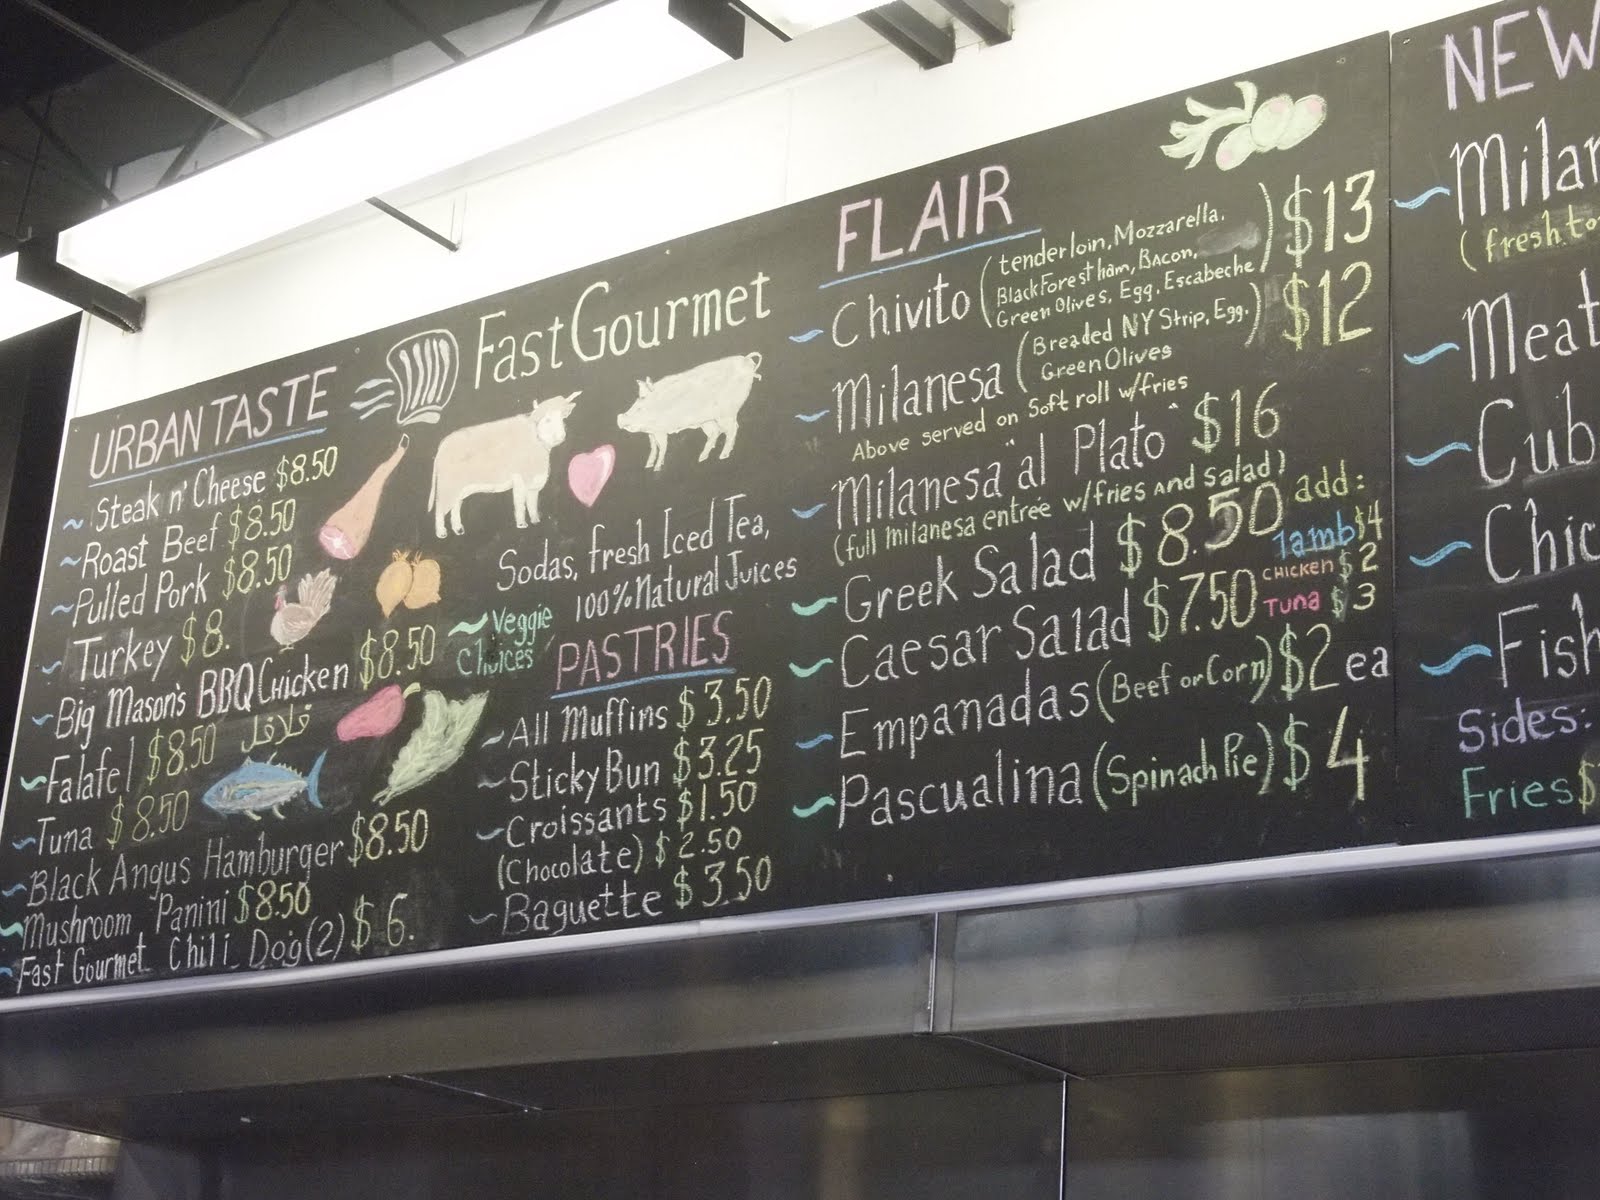 URBAN TASTE
Steak n' Cheese $8.50
Roast Beef $8.50
Pulled Pork $8.50
Turkey $8.
Big Mason's BBQ Chicken $8.50
Falafel $8.50 فلافل
Tuna $8.50
Black Angus Hamburger $8.50
Mushroom Panini $8.50
Fast Gourmet Chili Dog (2) $6.
Fast Gourmet
Sodas, fresh Iced Tea,
100% Natural Juices
~ Veggie
Choices
PASTRIES
All Muffins $3.50
Sticky Bun $3.25
Croissants $1.50
(Chocolate) $2.50
Baguette $3.50
FLAIR
Chivito (tenderloin, Mozzarella,
Black Forest ham, Bacon,
Green Olives, Egg, Escabeche) $13
Milanesa (Breaded NY Strip, Egg,
Green Olives) $12
Above served on Soft roll w/fries
Milanesa "al Plato" $16
(full milanesa entrée w/fries and salad)
Greek Salad $8.50 add:
lamb $4
Caesar Salad $7.50 chicken $2
Tuna $3
Empanadas (Beef or Corn) $2 ea
Pascualina (Spinach Pie) $4
NEW
Milan
(fresh to
Meat
Cub
Chic
Fish
Sides:
Fries $